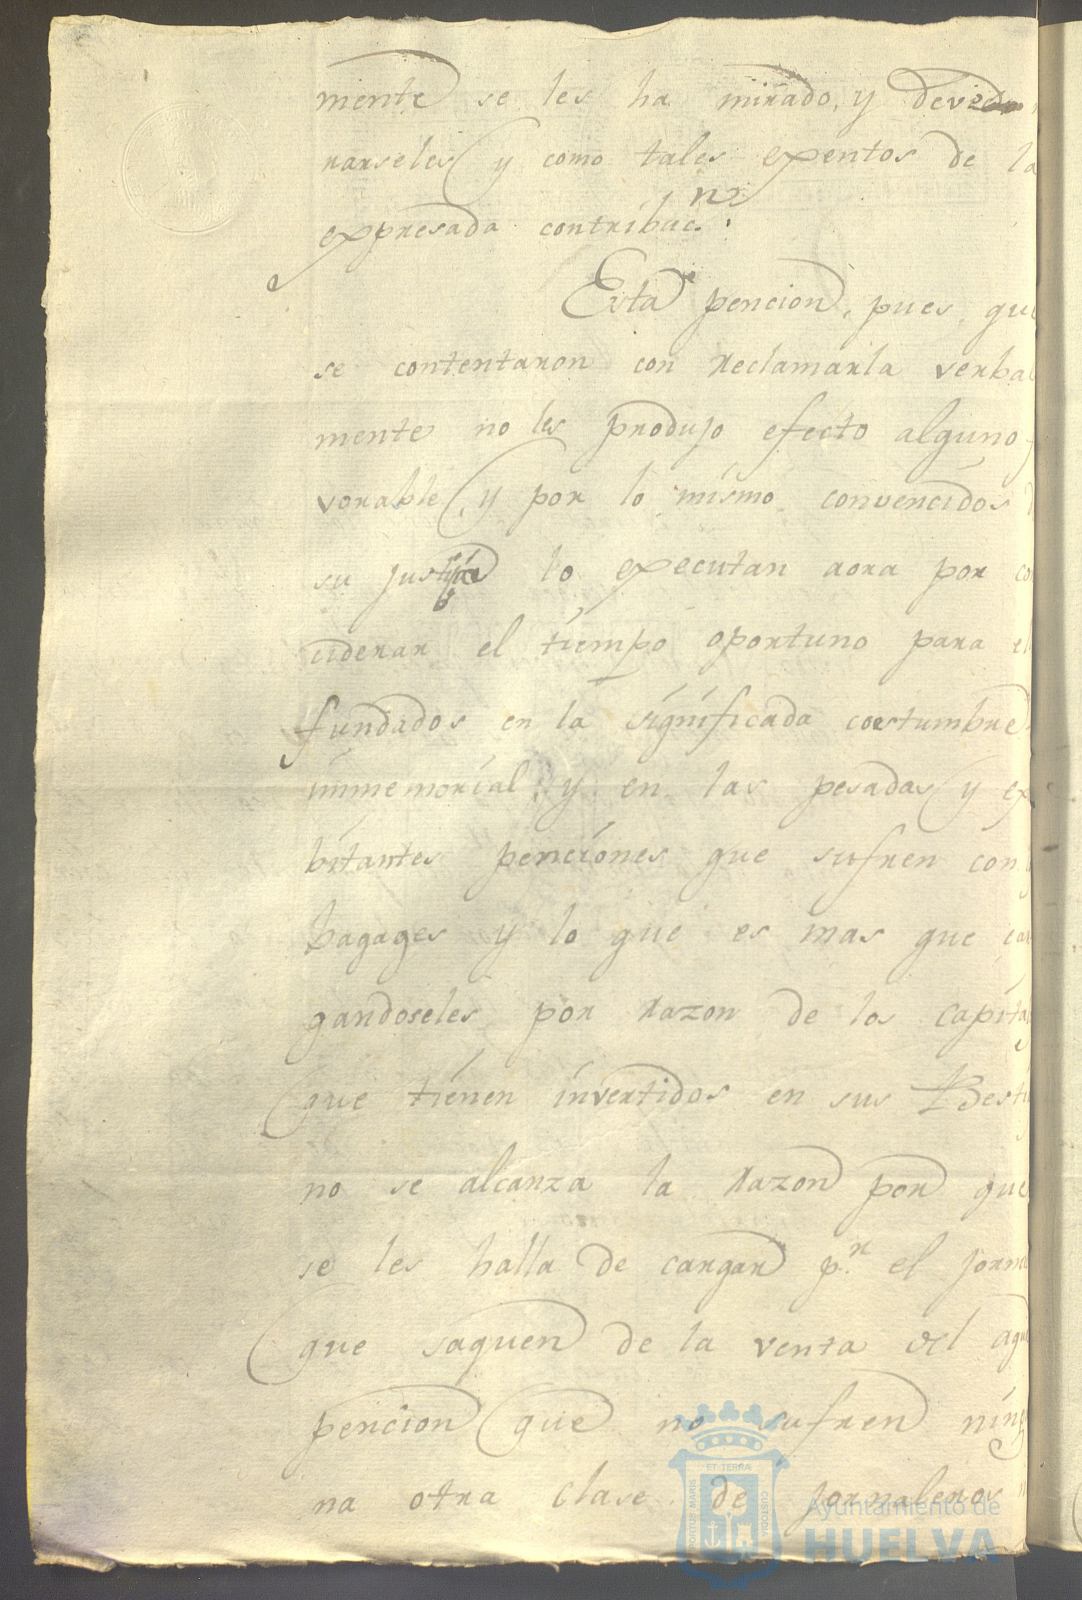 mente se les ha mirado, y deve
narseles y como tales exentos de la
expresada contribac.n
Esta pencion, pues, que
se contentaron con reclamarla verbal
mente no les produjo efecto alguno
vorable, y por lo mismo convencidos
su justicia lo executan aora por co
ciderar el tiempo oportuno para el
fundados en la significada costumbre
immemorial, y en las pesadas y ex
bitantes penciones que sufren con
bagages y lo que es mas que car
gandoseles por razon de los capita
que tienen invertidos en sus Besti
no se alcanza la razon por que
se les halla de cargar p.r el jorna
que saquen de la venta del agua
pencion que no sufren ningu
na otra clase de jornaleros
PORTUS MARIS ET TERRA CUSTODIA
Ayuntamiento de
HUELVA